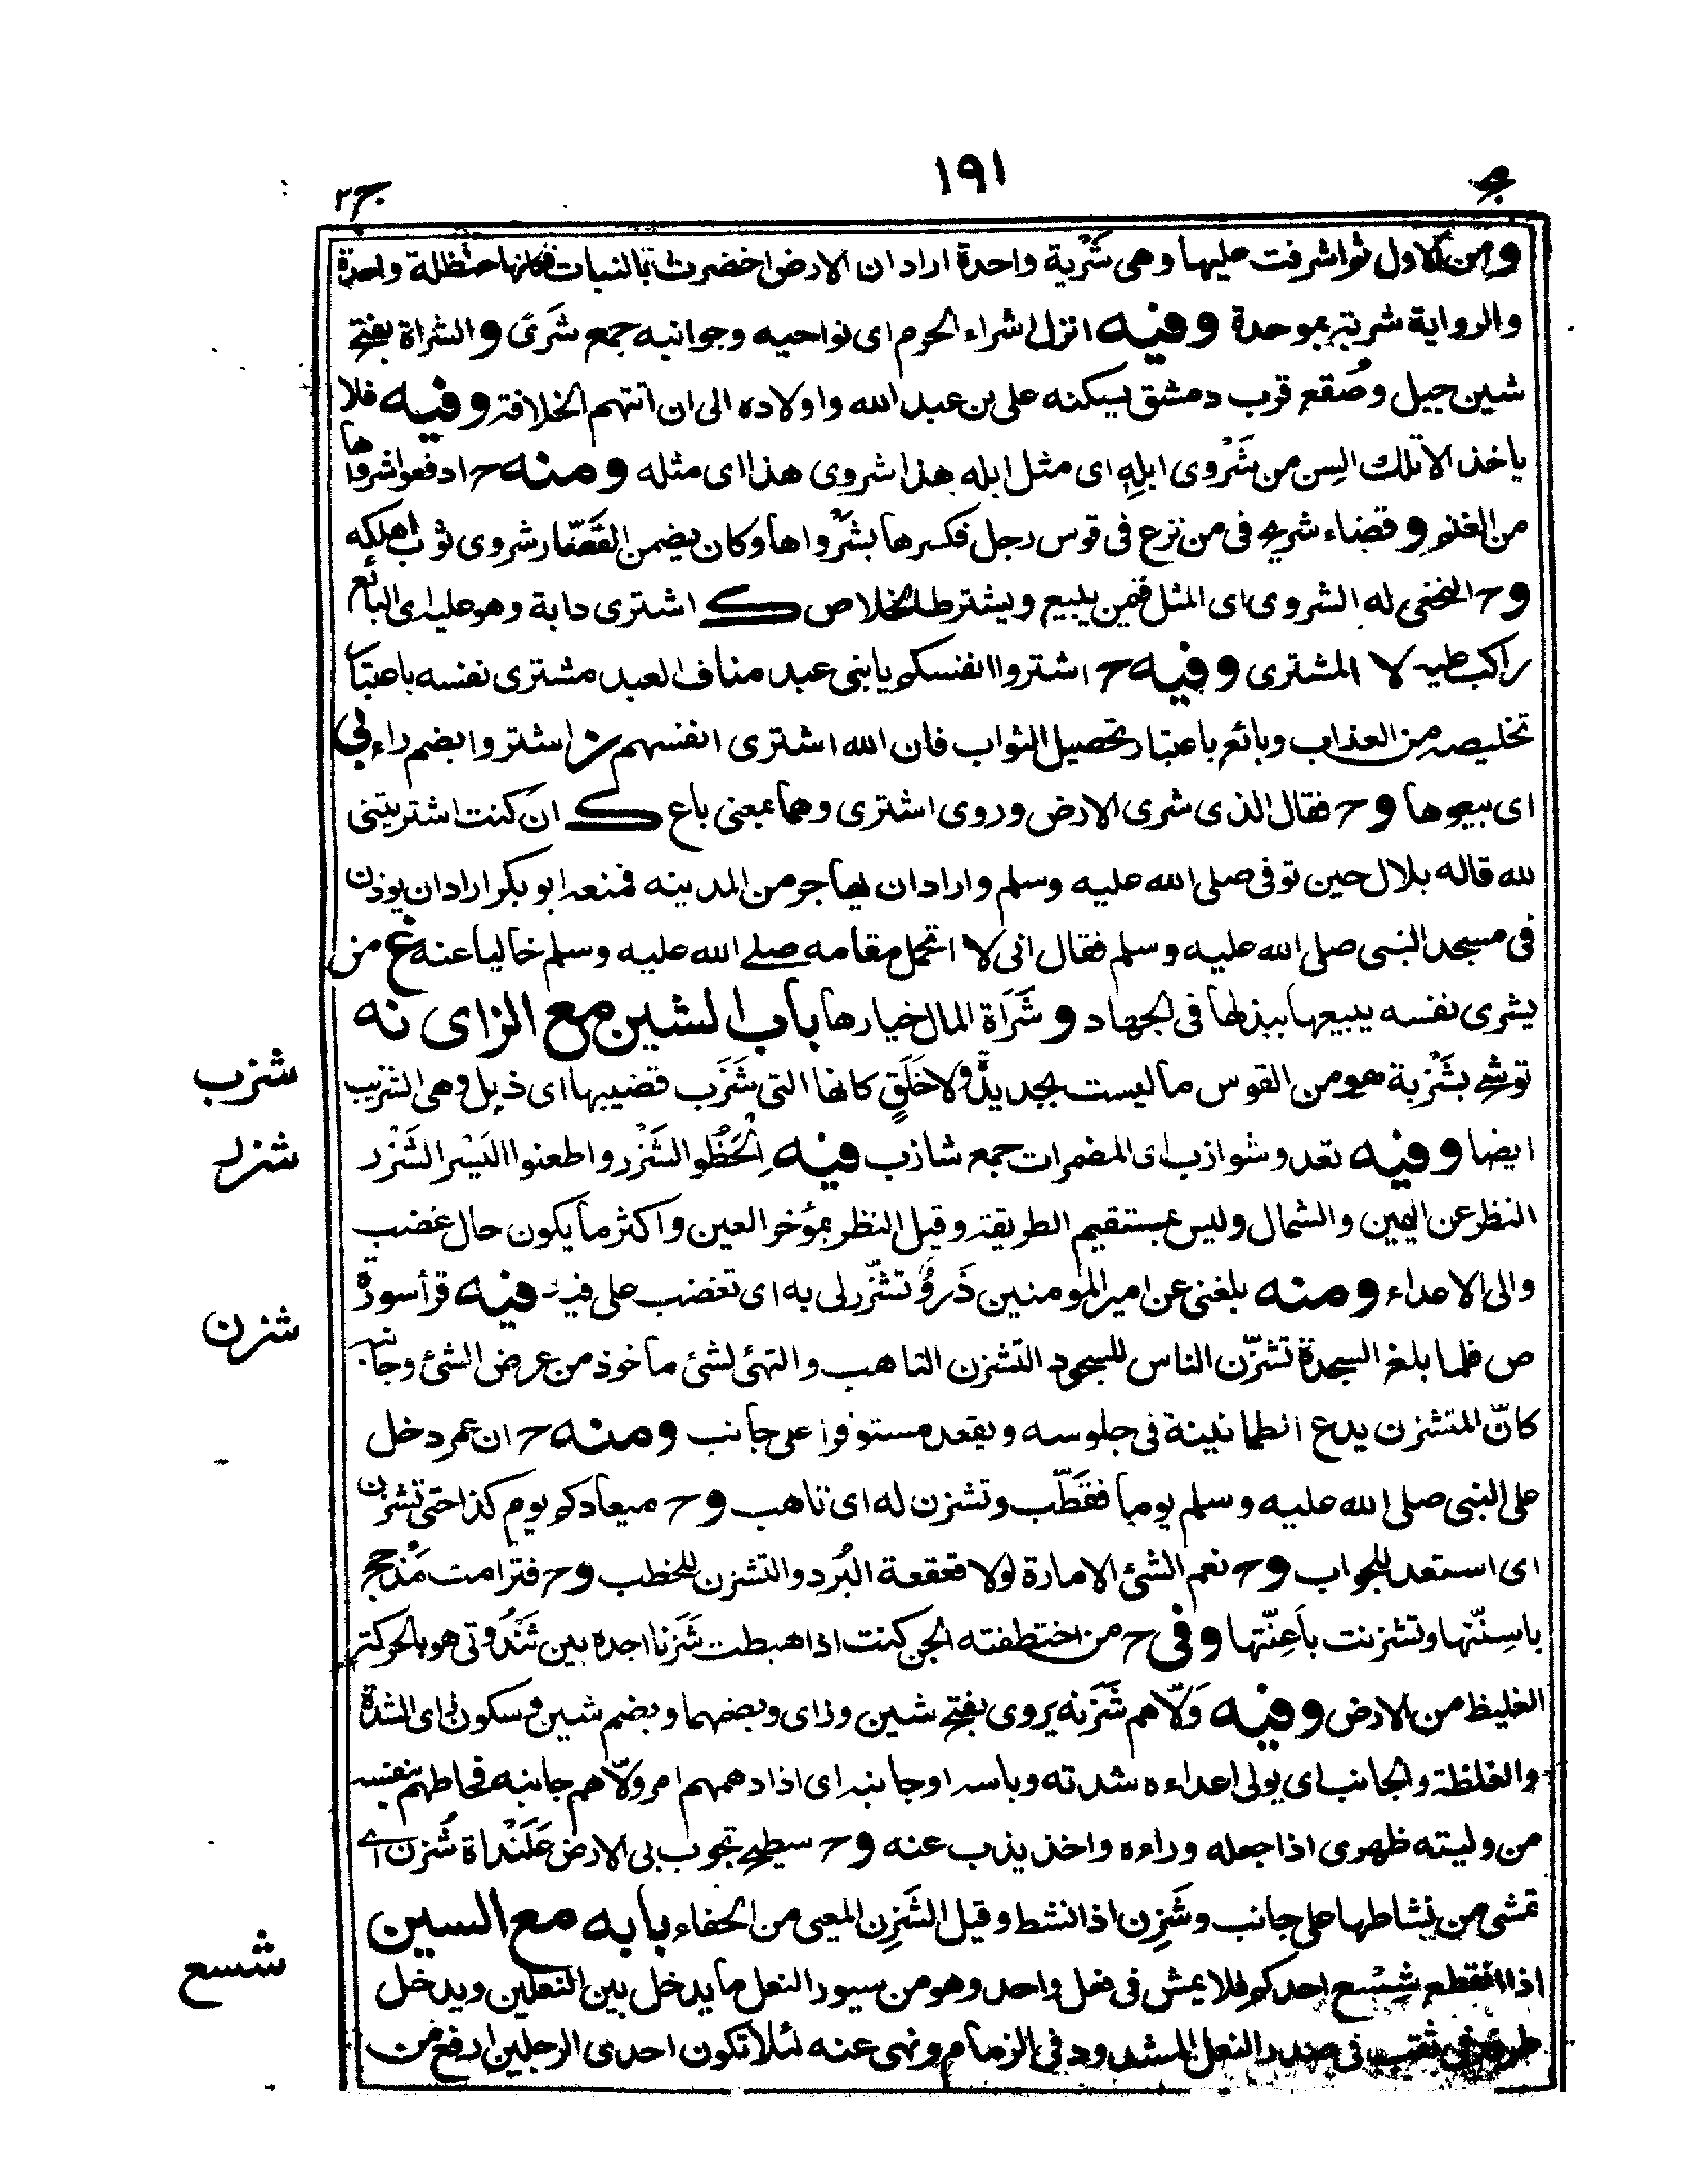 ١٩١
ج٢
ومن الاول ثم اشرفت عليها وهى شَرْية واحدة اراد ان الارض اخضرت بالنبات فكانها حنظلة واحدة
والرواية شربة بموحدة وفيه انزل اشراء الحرم اى نواحيه وجوانبه جمع شَرىً والشراة بفتح
شين جبل وصُقع قرب دمشق يسكنه على بن عبد الله واولاده الى ان اتتهم الخلافة وفيه فلا
ياخذ الا تلك السِن من شَرْوى ابلِه اى مثل ابله هذا شروى هذا اى مثله ومنه ح ادفعوا شرواها
من الغنم وقضاء شريح فى من نزع فى قوس رجل فكسرها بشَرْواها وكان يضمن القَصّار شروى ثوب اهلكه
وح النخعى له الشروى اى المثل فمن يبيع ويشترط الخلاص ك اشترى دابة وهو عليه اى البائع
راكب عليه لا المشترى وفيه ح اشتروا انفسكم يا بنى عبد مناف العبد مشترى نفسه باعتبا
تخليصه من العذاب وبائع باعتبار تحصيل الثواب فان الله اشترى انفسهم ن اشتروا بضم راء
اى بيعوها وح فقال الذى شرى الارض وروى اشترى وهما بمعنى باع ك ان كنت اشتريتنى
لله قاله بلال حين توفى صلى الله عليه وسلم واراد ان يهاجر من المدينه فمنعه ابو بكر اراد ان يوذن
فى مسجد النبى صلى الله عليه وسلم فقال انى لا اتحمل مقامه صلے الله عليه وسلم خاليا عنه غ من
يشرى نفسه يبيعها ببذلها فى الجهاد وشَرَاة المال خيارها باب الشين مع الزاى نه
توشح بشَزْبة هو من القوس ما ليست بجديدة ولا خَلَقٍ كانها التى شَزَب قضيبها اى ذبل وهى الشزيب
ايضا وفيه تعدو شوازب اى المضمرات جمع شازب فيه اِلْحَظُوا الشَزْر واطعنوا اليَسْر الشَزْر
النظر عن اليمين والشمال وليس بمستقيم الطريقة وقيل النظر بمؤخر العين واكثر ما يكون حال غضب
والى الاعداء ومنه بلغنى عن امير المومنين ذَروٌ تشزّر لى به اى تغضب على فيه فيه قرأ سورة
ص فلما بلغ السجدة تشزّن الناس للسجود التشزن التاهب والتهئ لشئ ماخوذ من عرض الشئ وجانبه
كانّ المتشزن يدع الطمانينة فى جلوسه ويقعد مستوفزا على جانب ومنه ح ان عمر دخل
على النبى صلى الله عليه وسلم يوما فقَطّب وتشزن له اى تاهب وح ميعادكم يوم كذا حتى تشزن
اى استعد للجواب وح نعم الشئ الامارة لولا قعقعة البُرُد والتشزن للخطب وح فترامت مَذْحج
باسنّتها وتشزنت باَعِنّتها وفى ح من اختطفته الجن كنت اذا هبطت شَزَنا اجده بين ثَنْدُوتى هو بالحركة
الغليظ من الارض وفيه وَلّاهم شَزَنه يروى بفتح شين وزاى وبضمهما وبضم شين وسكون زاى اى الشدة
والغلظة والجانب اى يولى اعداءه شدته وباسه او جانبه اى اذا دهمهم امر ولّاهم جانبه فحاطهم بنفسه
من وليته ظهرى اذا جعله وراءه واخذ يذب عنه وح سطيح تجوب بى الارض عَلَنْداة شُزن اى
تمشى من نشاطها على جانب وشَزِن اذا نشط وقيل الشَزِن المعيى من الحفاء بابه مع السين
اذا انقطع شِسْع احدكم فلا يمش فى نعل واحد وهو من سيور النعل ما يدخل بين النعلين ويدخل
طرفه فى ثقب فى صدر النعل المشدود فى الزمام ونهى عنه لئلا تكون احدى الرجلين ارفع من
شزب
شزر
شزن
شسع